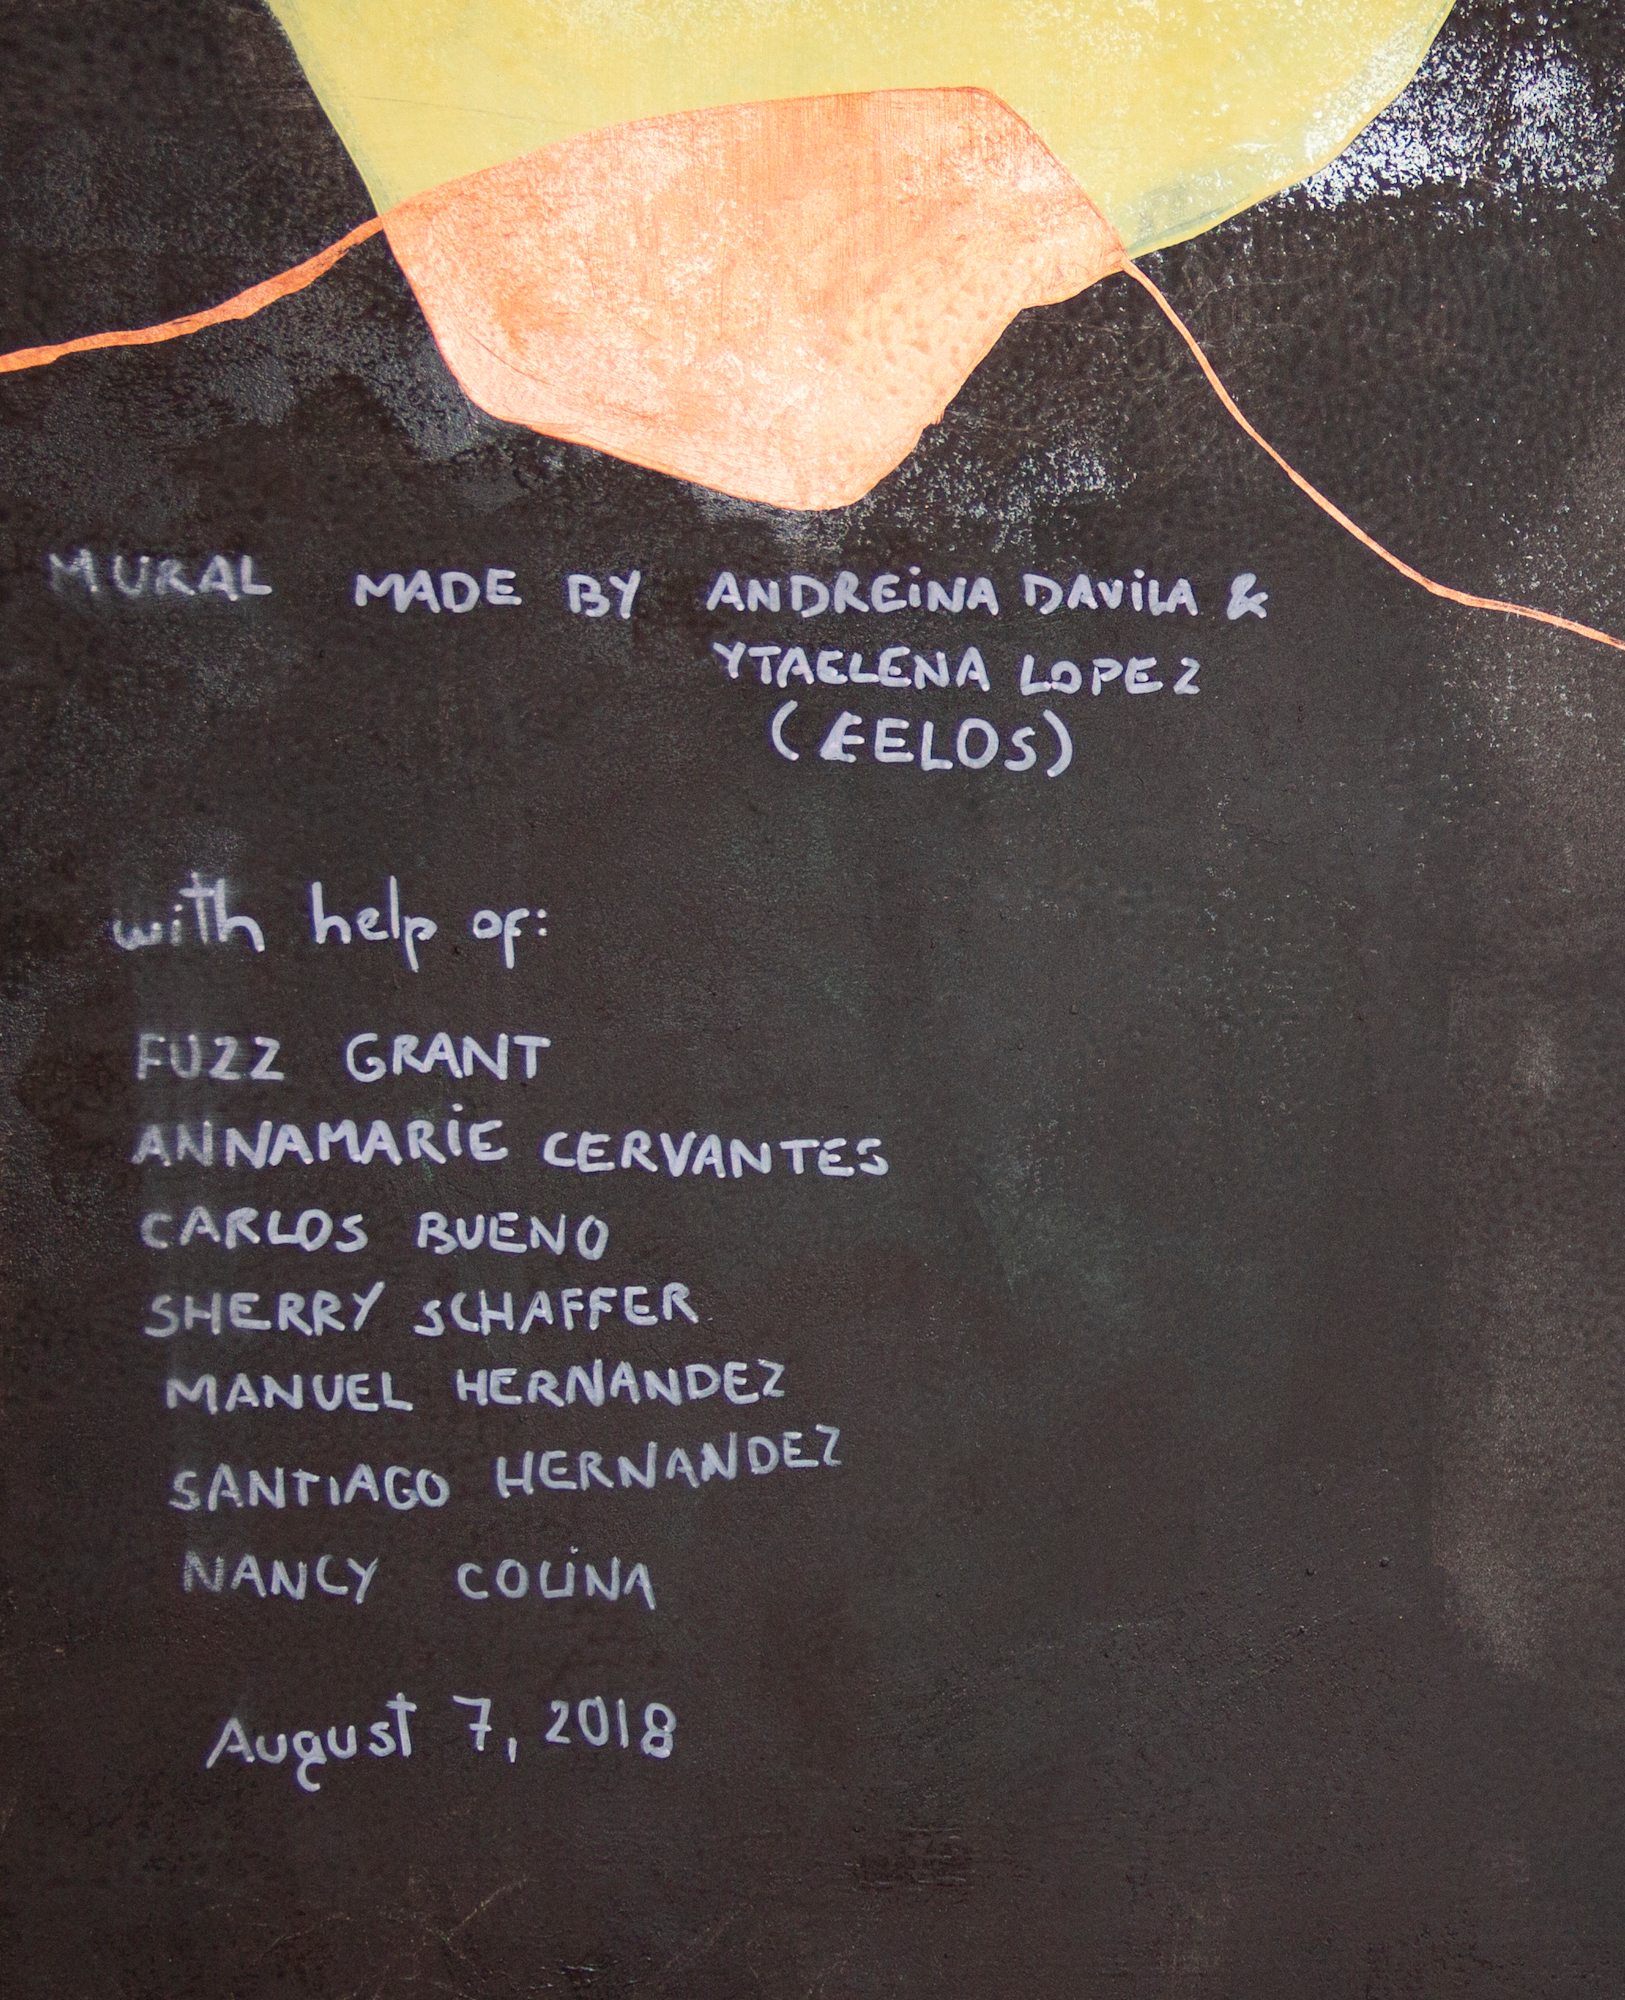 MURAL MADE BY ANDREINA DAVILA &
YTAELENA LOPEZ
(ÆELOS)
with help of:
FUZZ GRANT
ANNAMARIE CERVANTES
CARLOS BUENO
SHERRY SCHAFFER
MANUEL HERNANDEZ
SANTIAGO HERNANDEZ
NANCY COLINA
August 7, 2018